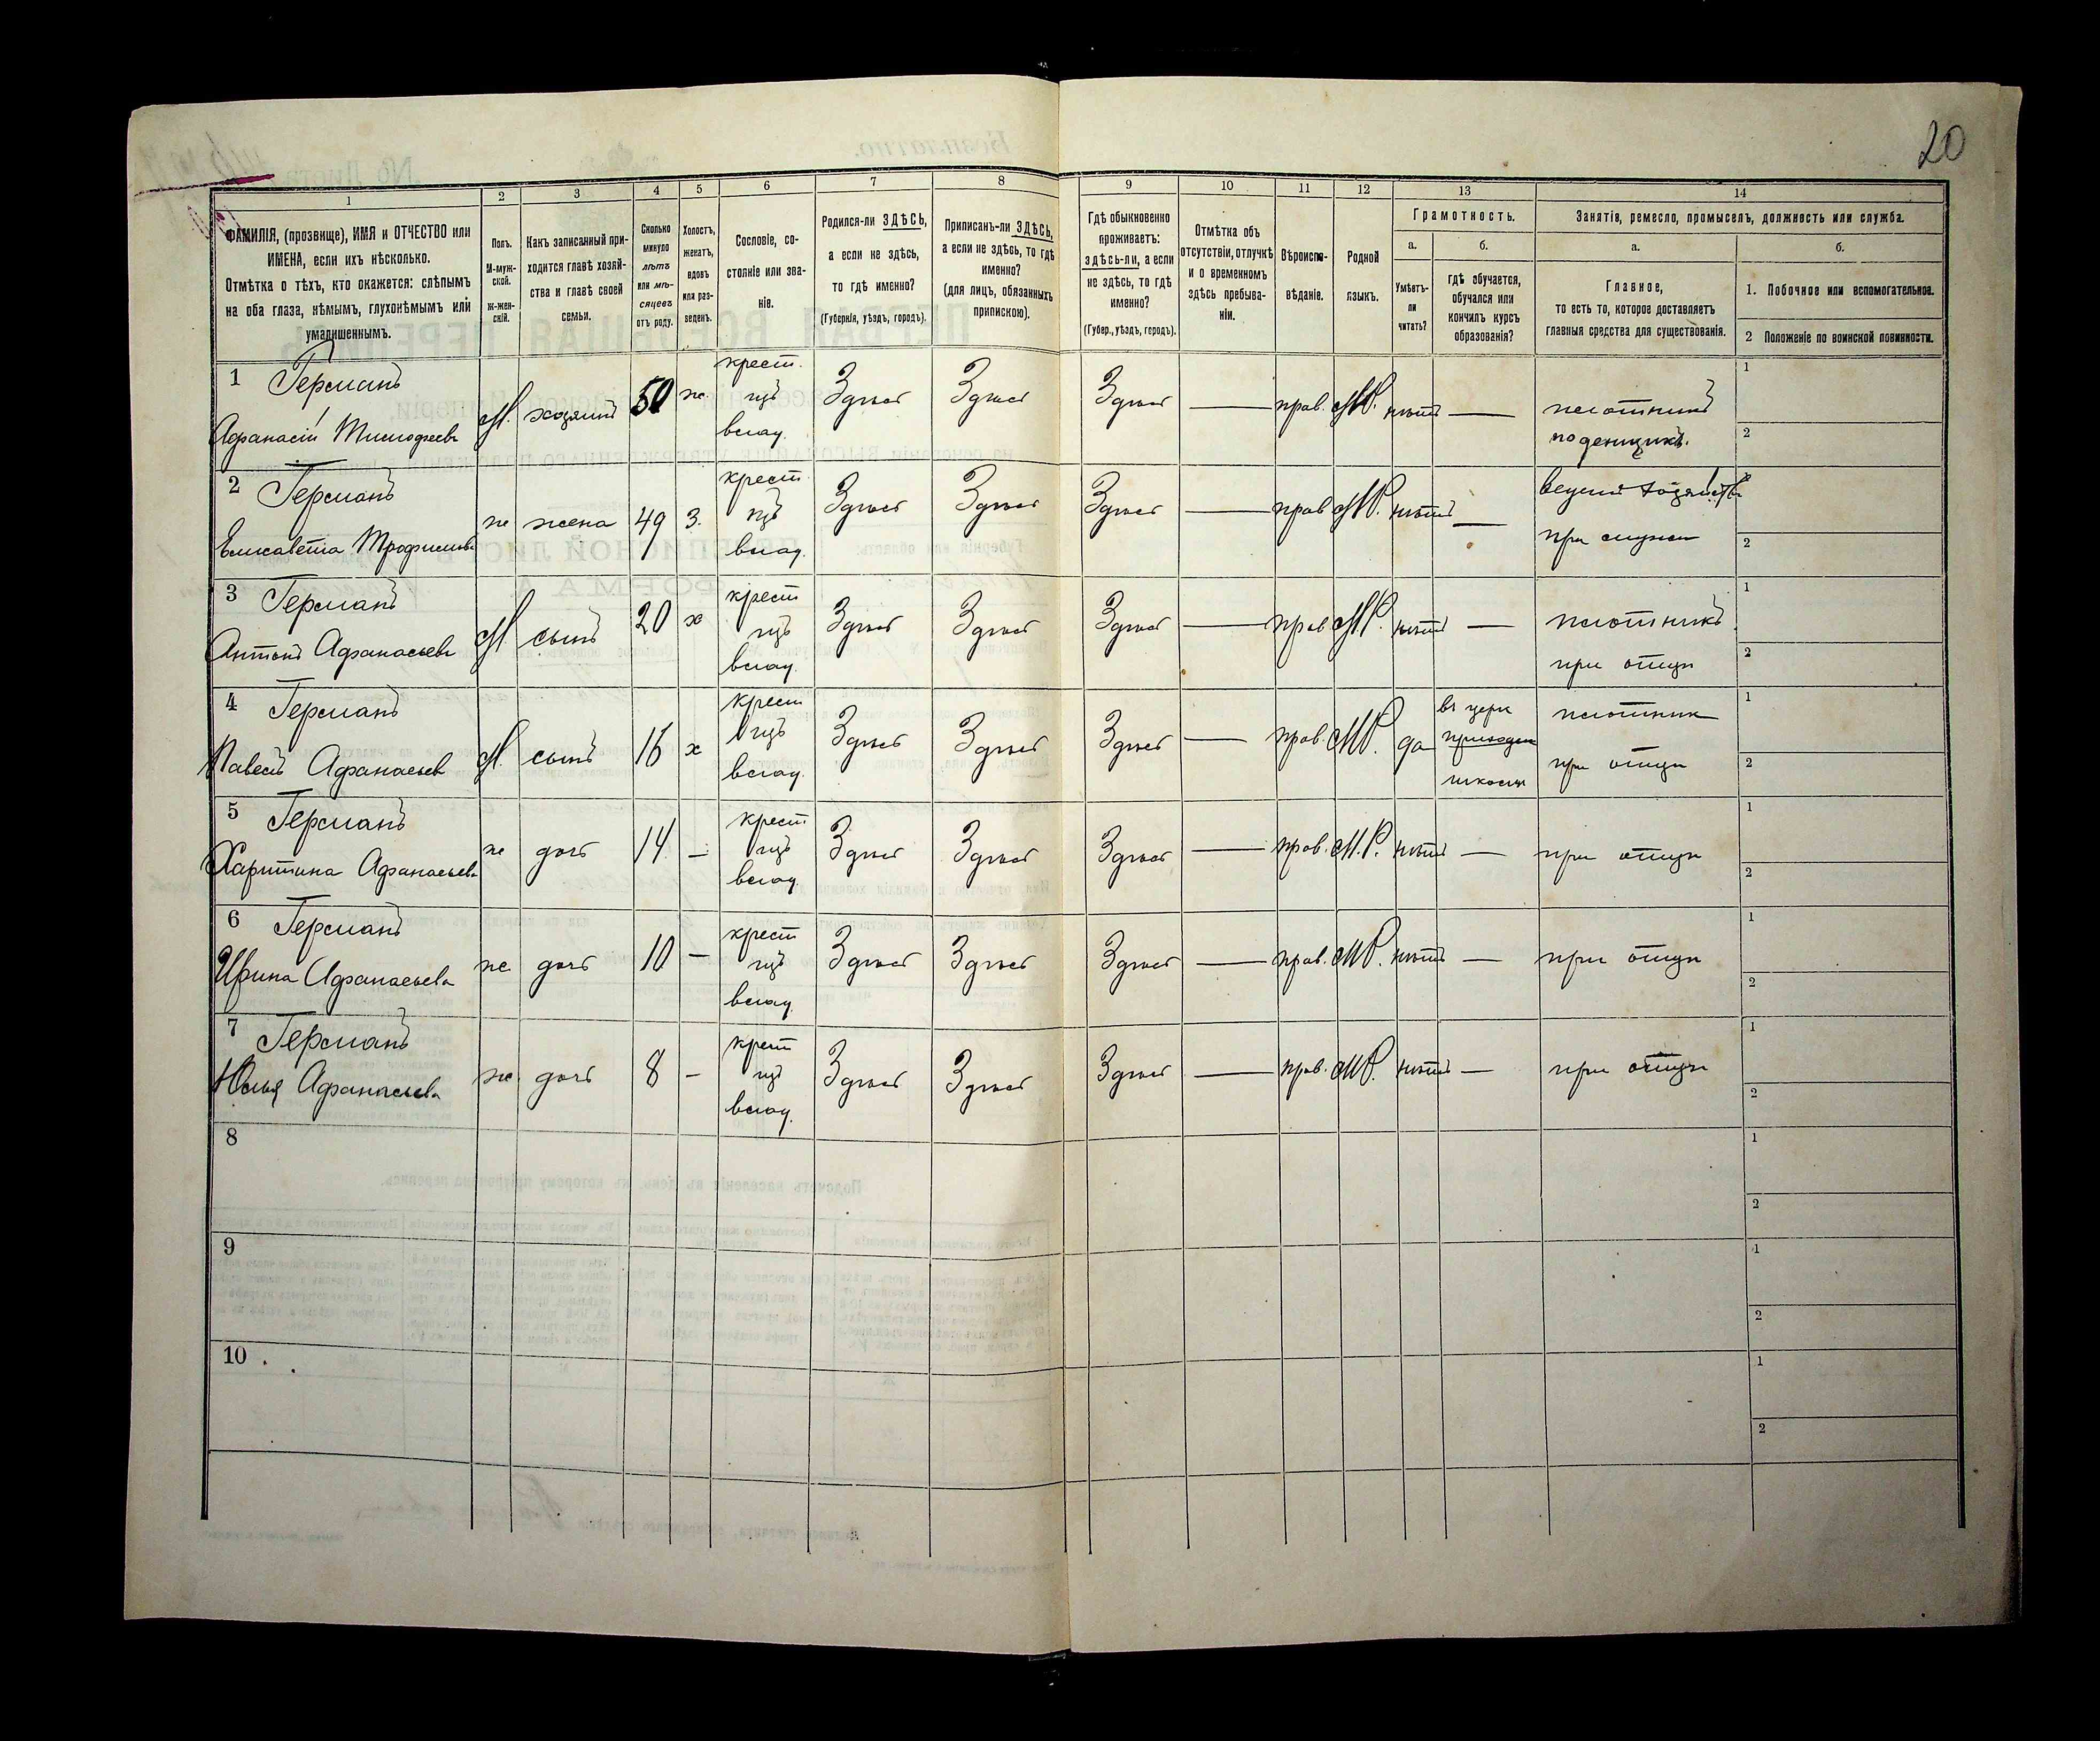 20
1
2
3
4
5
6
7
8
9
10
11
12
13
14
ФАМИЛІЯ, (прозвище), ИМЯ и ОТЧЕСТВО или
ИМЕНА, если ихъ нѣсколько.
Отмѣтка о тѣхъ, кто окажется: слѣпымъ
на оба глаза, нѣмымъ, глухонѣмымъ или
умалишеннымъ.
Полъ.
М-муж-
ской.
Ж-жен-
скій.
Какъ записанный при-
ходится главѣ хозяй-
ства и главѣ своей
семьи.
Сколько
минуло
лѣтъ
или мѣ-
сяцевъ
отъ роду.
Холостъ,
женатъ,
вдовъ
или раз-
веденъ.
Сословіе, со-
стояніе или зва-
ніе.
Родился-ли ЗДѢСЬ,
а если не здѣсь,
то гдѣ именно?
(Губернія, уѣздъ, городъ).
Приписанъ-ли ЗДѢСЬ,
а если не здѣсь, то гдѣ
именно?
(для лицъ, обязанныхъ
припискою).
Гдѣ обыкновенно
проживаетъ:
здѣсь-ли, а если
не здѣсь, то гдѣ
именно?
(Губер., уѣздъ, городъ).
Отмѣтка объ
отсутствіи, отлучкѣ
и о временномъ
здѣсь пребыва-
ніи.
Вѣроиспо-
вѣданіе.
Родной
языкъ.
Грамотность.
а.
б.
Умѣетъ-
ли
читать?
гдѣ обучается,
обучался или
кончилъ курсъ
образованія?
Занятія, ремесло, промыселъ, должность или служба.
а.
б.
Главное,
то есть то, которое доставляетъ
главныя средства для существованія.
1. Побочное или вспомогательное.
2 Положеніе по воинской повинности.
1 Германъ
Афанасій Тимофеевъ
М. хозяинъ 50 ж.
крест.
изъ
влад.
Здѣсь Здѣсь Здѣсь — прав. М.Р. нѣтъ —
плотникъ
поденщикъ.
1
2
2 Германъ
Елисавета Трофимова
ж жена 49 З.
крест
изъ
влад.
Здѣсь Здѣсь Здѣсь — прав М.Р. нѣтъ —
при мужѣ
2
3 Германъ
Антонъ Афанасьевъ
М. сынъ 20 х
крест
изъ
влад.
Здѣсь Здѣсь Здѣсь — прав М.Р. нѣтъ —
плотникъ
при отцѣ
1
2
4 Германъ
Павелъ Афанасьев
М. сынъ 16 х
крест
изъ
влад.
Здѣсь Здѣсь Здѣсь — прав. М.Р. да
въ церк
приходск
школѣ
плотник
при отцѣ
1
2
5 Германъ
Харитина Афанасьева
ж дочь 14 —
крест
изъ
влад
Здѣсь Здѣсь Здѣсь — прав. М.Р. нѣтъ — при отцѣ
1
2
6 Германъ
Ирина Афанасьева
ж. дочь 10 —
крест
изъ
влад.
Здѣсь Здѣсь Здѣсь — прав. М.Р. нѣтъ — при отцѣ
1
2
7 Германъ
Юлія Афанасьева
ж. дочь 8 —
крест
изъ
влад.
Здѣсь Здѣсь Здѣсь — прав. М.Р. нѣтъ — при отцѣ
1
2
8
1
2
9
1
2
10
1
2